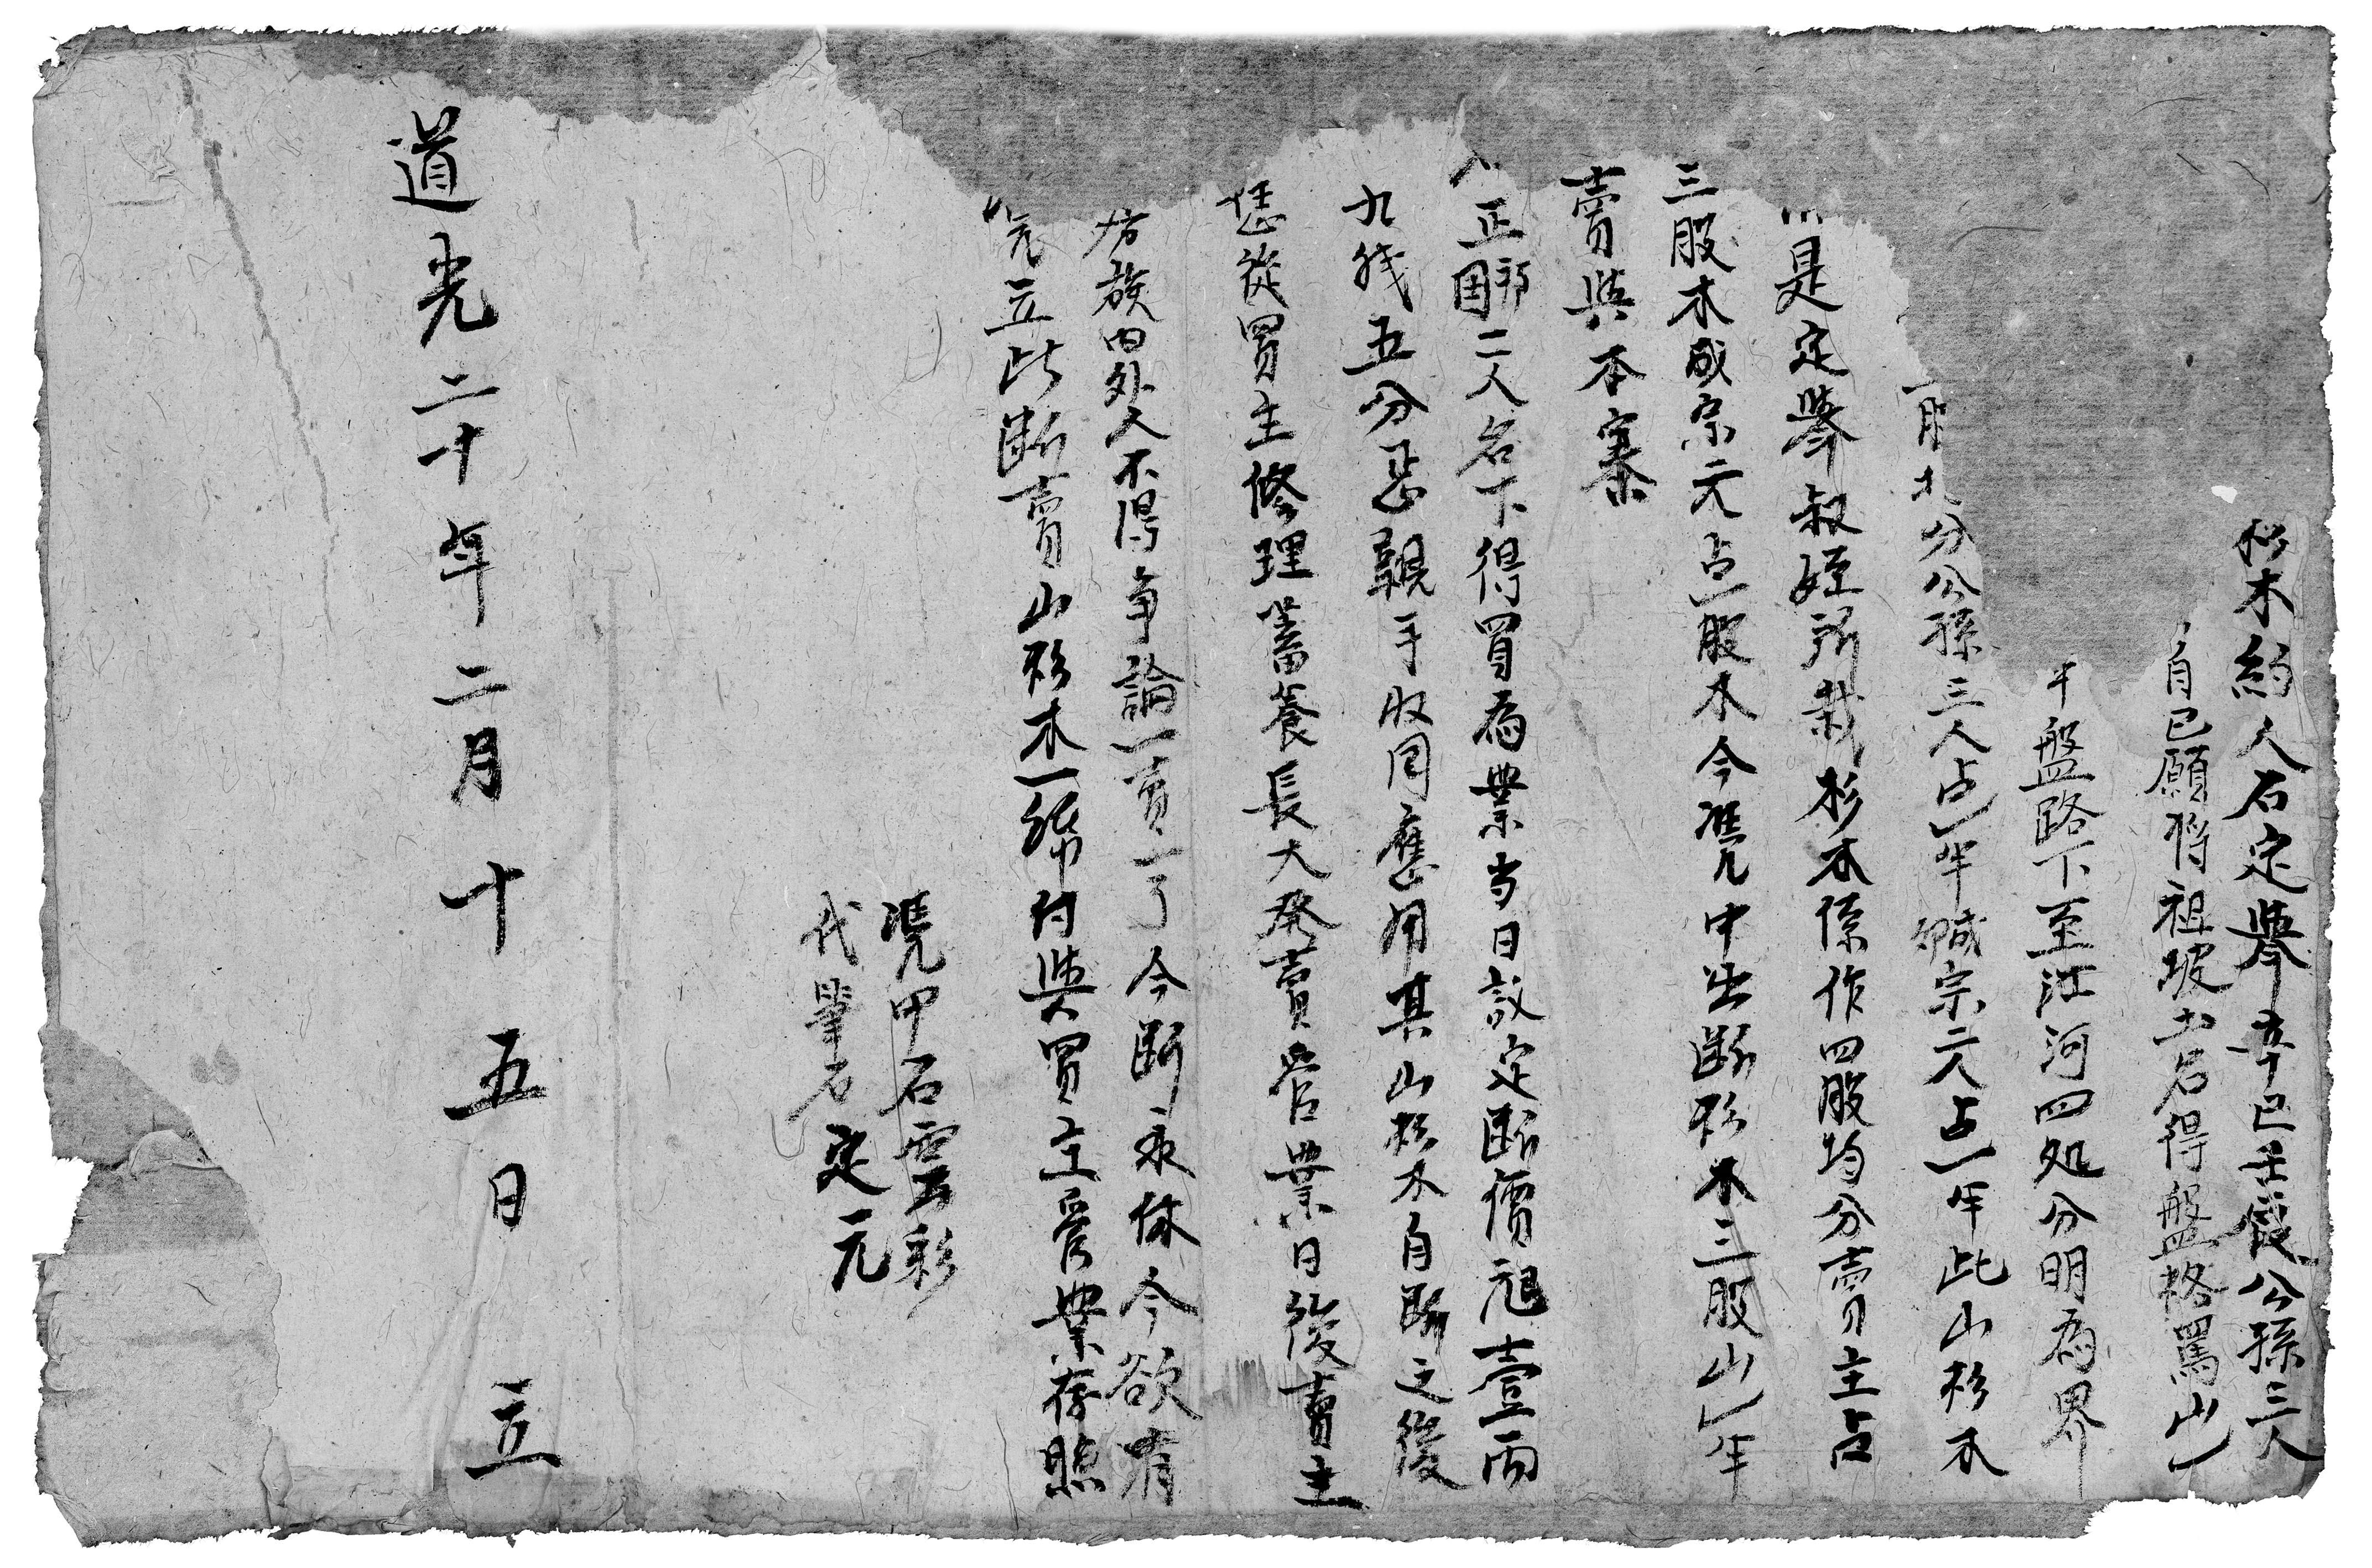 杉木約人石定舉辛巳壬公孫三人
自已願將祖坡土名得盤格罵山一
盤路下至江河四処分明為界
股木分公孫三人占一半喊宗元占一半此山杉木
是定舉叔姪所栽杉木係作四股均分賣主占
三股木成宗元占一股木今憑中出断杉木三股山一半
賣與本寨
正二人名下得買為業当日議定断價艮壹両
九錢五分恁親手收回應用其山杉木自断之後
恁從買主修理蓄養長大發賣管業日後賣主
房族内外人不得争論一賣一了今断永休今欲有
凭立此断賣山杉木一紙付與買主管業存照
憑中石雲彩
代筆石定元
道光二十年二月十五日 立